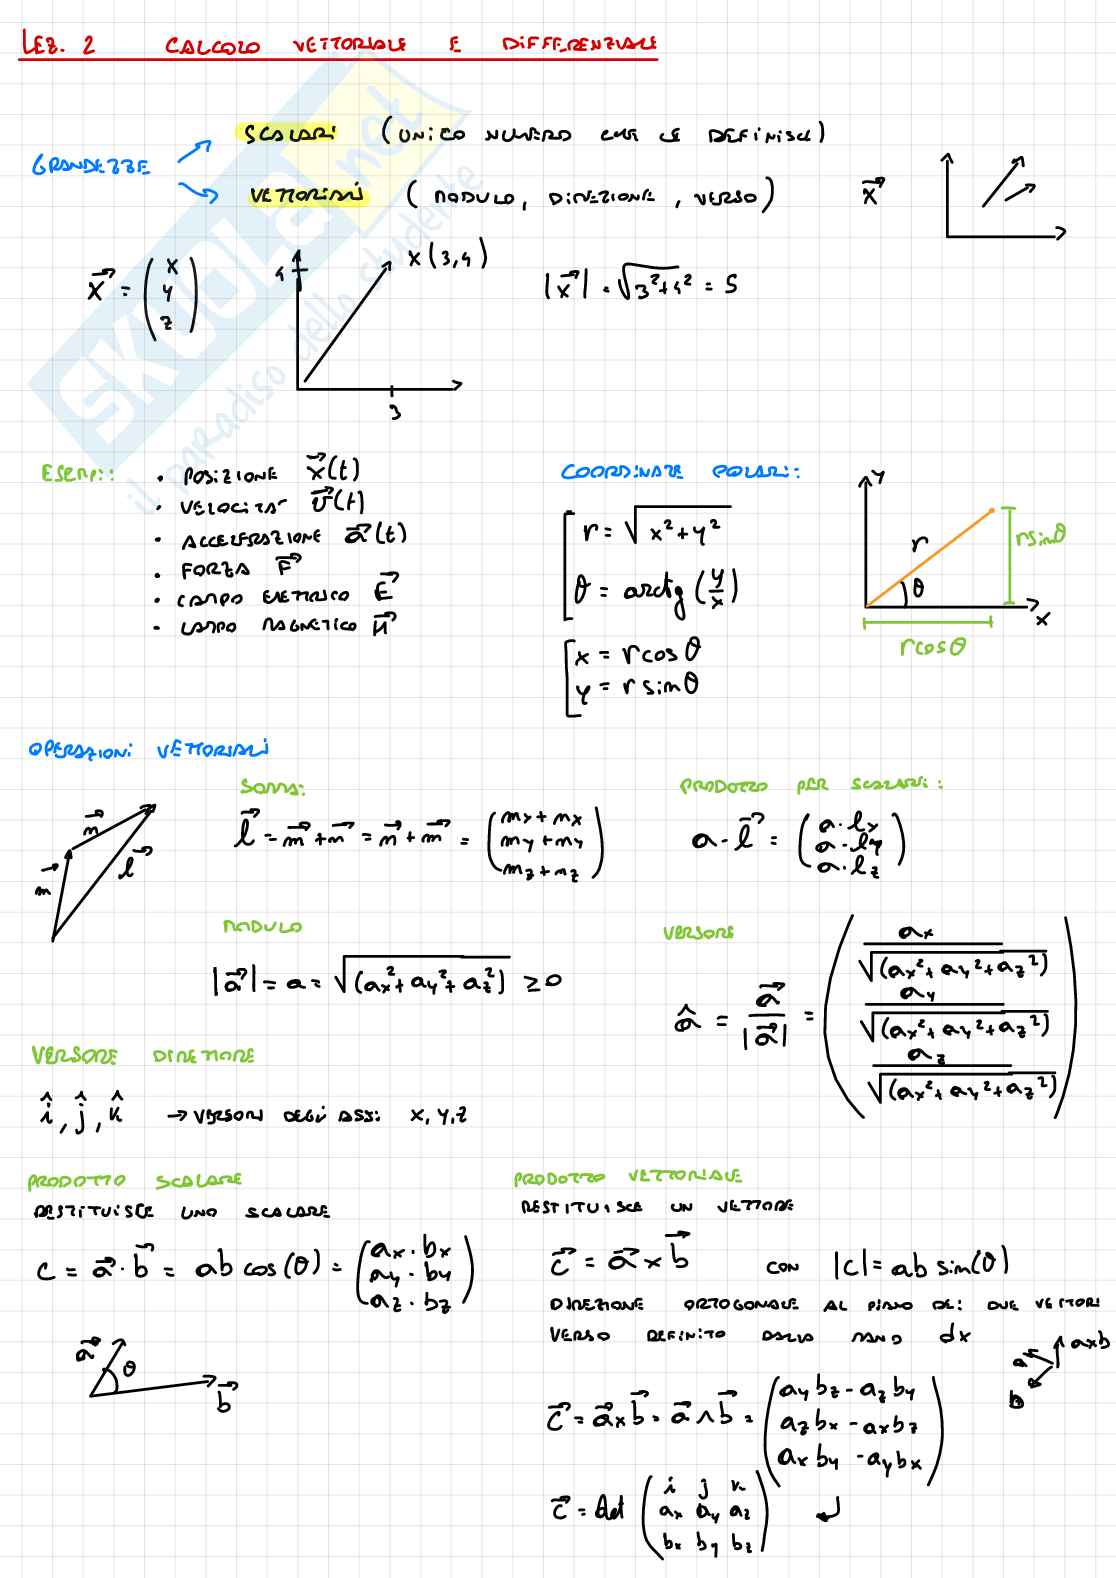 LEZ. 2 CALCOLO VETTORIALE E DIFFERENZIALE
SCALARI (UNICO NUMERO CHE LE DEFINISCE)
GRANDEZZE
VETTORIALI (MODULO, DIREZIONE, VERSO) x⃗
x⃗ = (x y z)
4 X(3,4)
3
|x⃗| = √3²+4² = 5
ESEMPI:
• POSIZIONE x⃗(t)
• VELOCITA' v⃗(t)
• ACCELERAZIONE a⃗(t)
• FORZA F⃗
• CAMPO ELETTRICO E⃗
• CAMPO MAGNETICO H⃗
COORDINATE POLARI:
r = √x²+y²
θ = arctg (y/x)
x = r cos θ
y = r sin θ
y
r
θ
r sin θ
x
r cos θ
OPERAZIONI VETTORIALI
SOMMA:
n⃗
m⃗
l⃗
l⃗ = m⃗ + n⃗ = n⃗ + m⃗ = (mx + nx
my + ny
mz + nz)
PRODOTTO PER SCALARI:
a · l⃗ = (a · lx
a · ly
a · lz)
MODULO
|a⃗| = a = √(ax² + ay² + az²) ≥ 0
VERSORE
â = a⃗/|a⃗| = (ax/√(ax² + ay² + az²)
ay/√(ax² + ay² + az²)
az/√(ax² + ay² + az²))
VERSORE DIRETTORE
î, ĵ, k̂ → VERSORI DEGLI ASSI X, Y, Z
PRODOTTO SCALARE
RESTITUISCE UNO SCALARE
c = a⃗ · b⃗ = ab cos(θ) = (ax · bx
ay · by
az · bz)
a⃗
θ
b⃗
PRODOTTO VETTORIALE
RESTITUISCE UN VETTORE
c⃗ = a⃗ × b⃗ CON |c| = ab sin(θ)
DIREZIONE ORTOGONALE AL PIANO DEI DUE VETTORI
VERSO DEFINITO DALLA MANO dx
a×b
a
b
c⃗ = a⃗×b⃗ = a⃗ ∧ b⃗ = (ay bz - az by
az bx - ax bz
ax by - ay bx)
c⃗ = det (i j k
ax ay az
bx by bz) ↲
SKUOLA.net
il paradiso dello studente